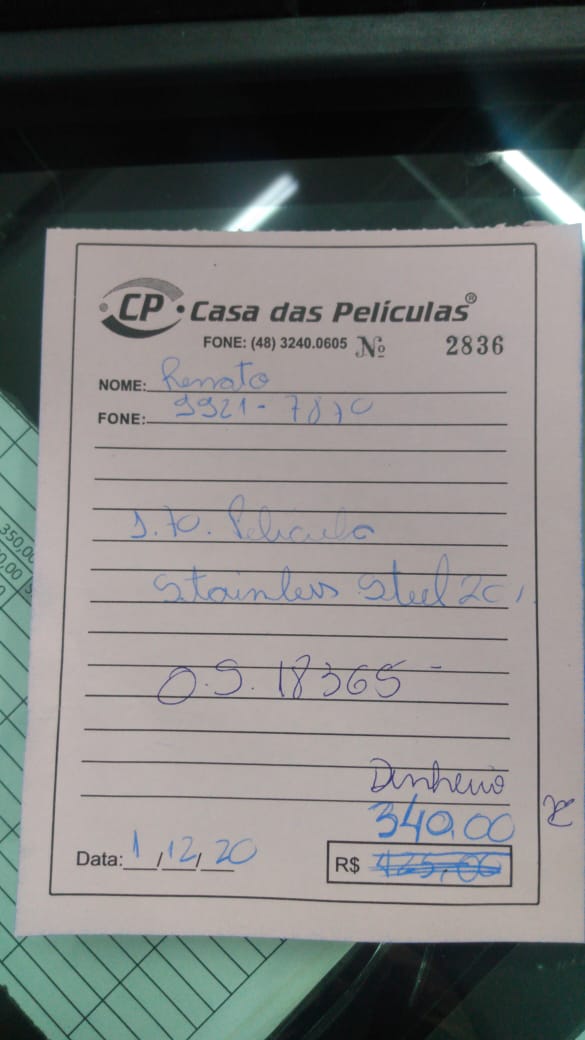 CP Casa das Películas®
FONE: (48) 3240.0605 Nº 2836
NOME: Renato
FONE: 9921-7870
1.70. Película
Stainless Steel 20%
O.S. 18365
Dinheiro
340,00
Data: 1/12/20 R$ 425,00
350,00